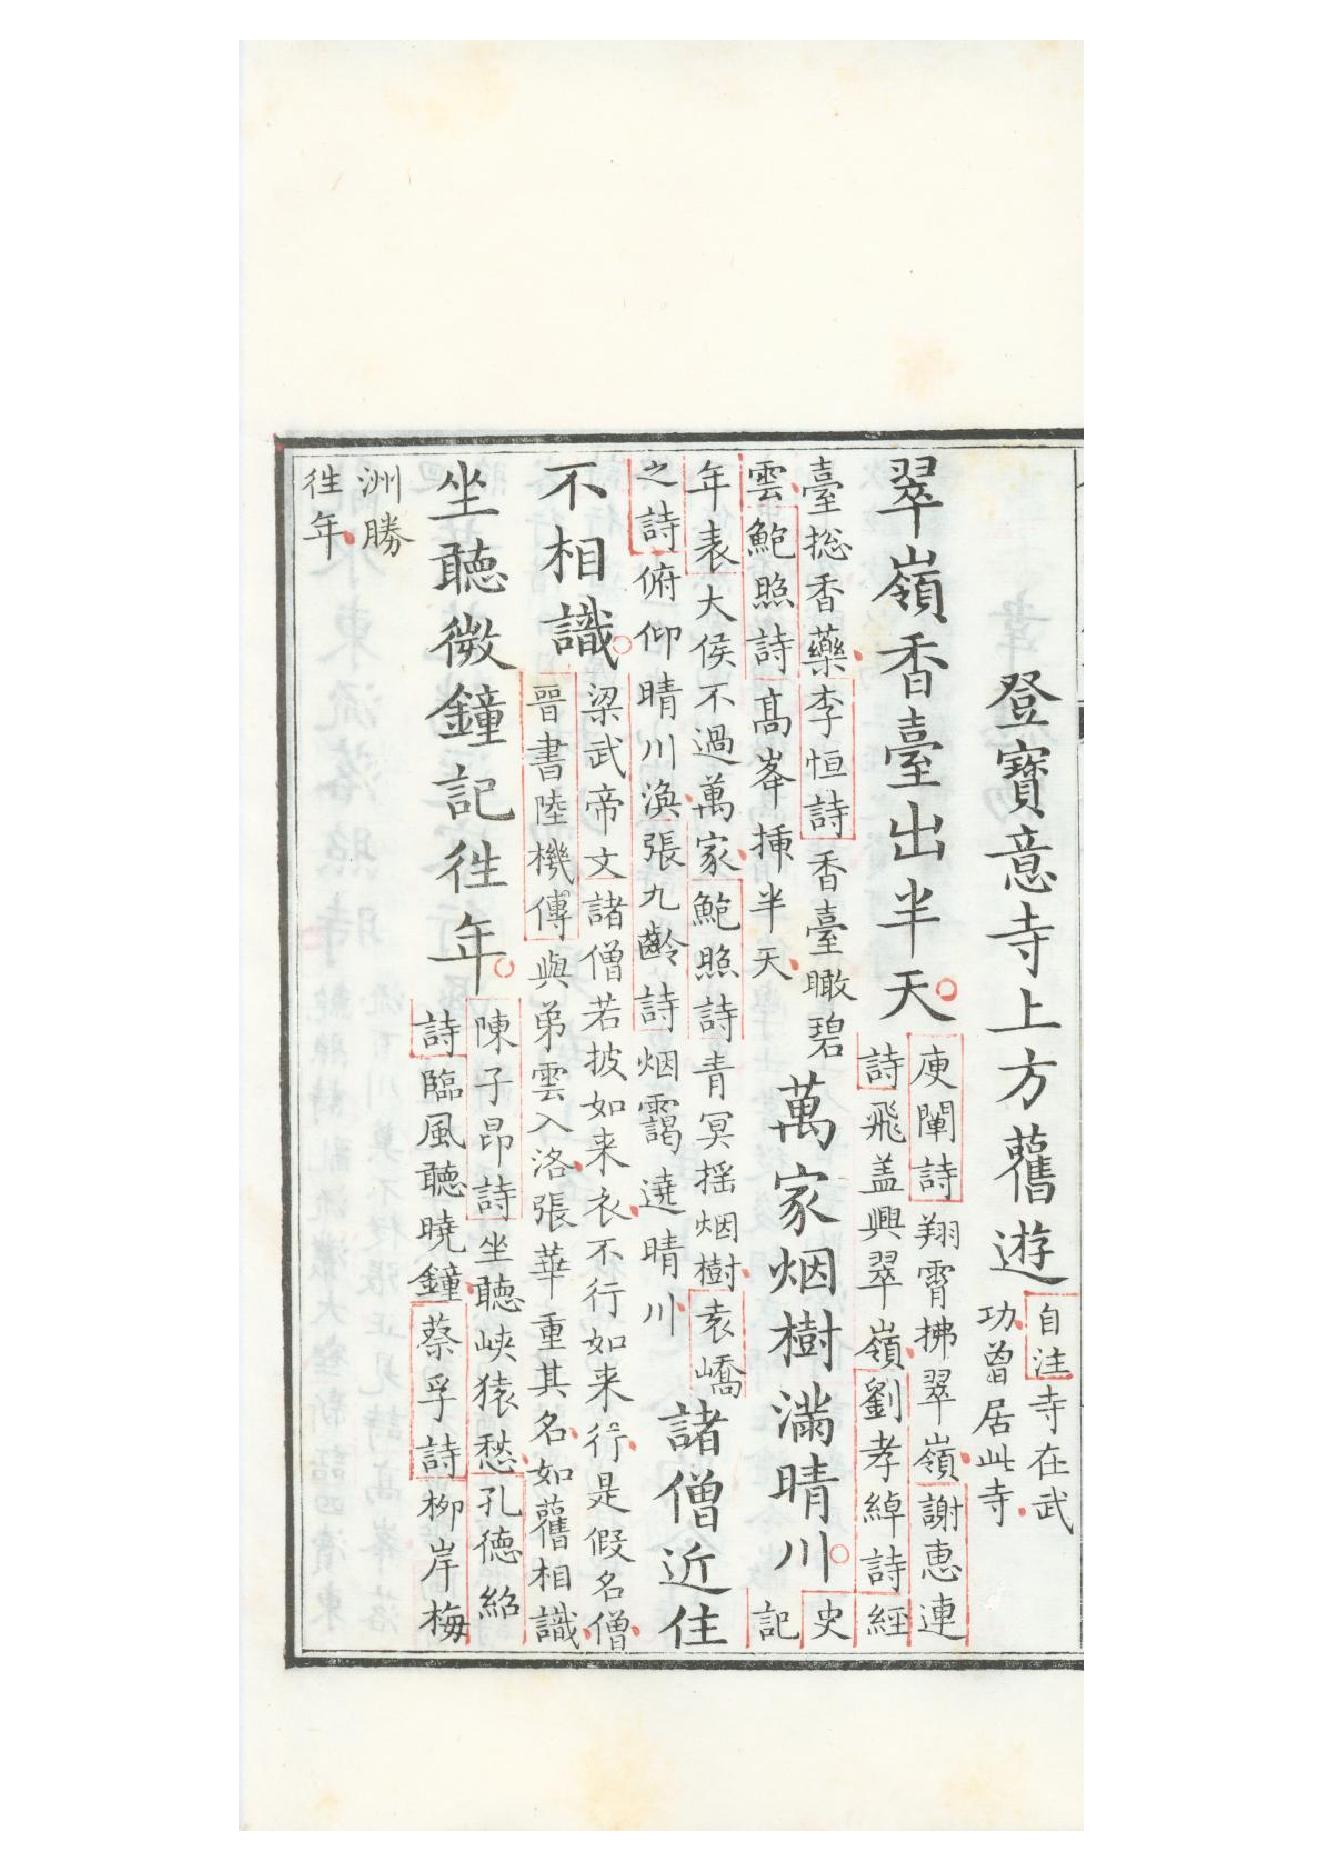 登寶意寺上方舊遊
自注寺在武
功曾居此寺
翠嶺香臺出半天
庾闡詩翔霄拂翠嶺謝惠連
詩飛盖興翠嶺劉孝綽詩經
臺総香藥李恒詩香臺瞰碧
雲鮑照詩高峯揷半天
萬家烟樹滿晴川
史
記
年表大侯不過萬家鮑照詩青冥摇烟樹袁嶠
之詩俯仰晴川渙張九齡詩烟靄遶晴川
諸僧近住
不相識
梁武帝文諸僧若披如来衣不行如来行是假名僧
晉書陸機傳與弟雲入洛張華重其名如舊相識
坐聽微鐘記往年
陳子昂詩坐聽峡猿愁孔德紹
詩臨風聽曉鐘蔡孚詩柳岸梅
洲勝
往年